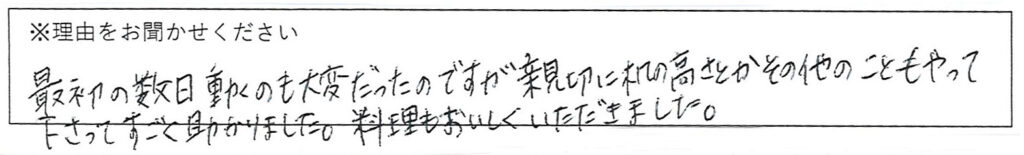 ※理由をお聞かせください
最初の数日動くのも大変だったのですが親切に机の高さとかその他のこともやって
下さってすごく助かりました。料理もおいしくいただきました。